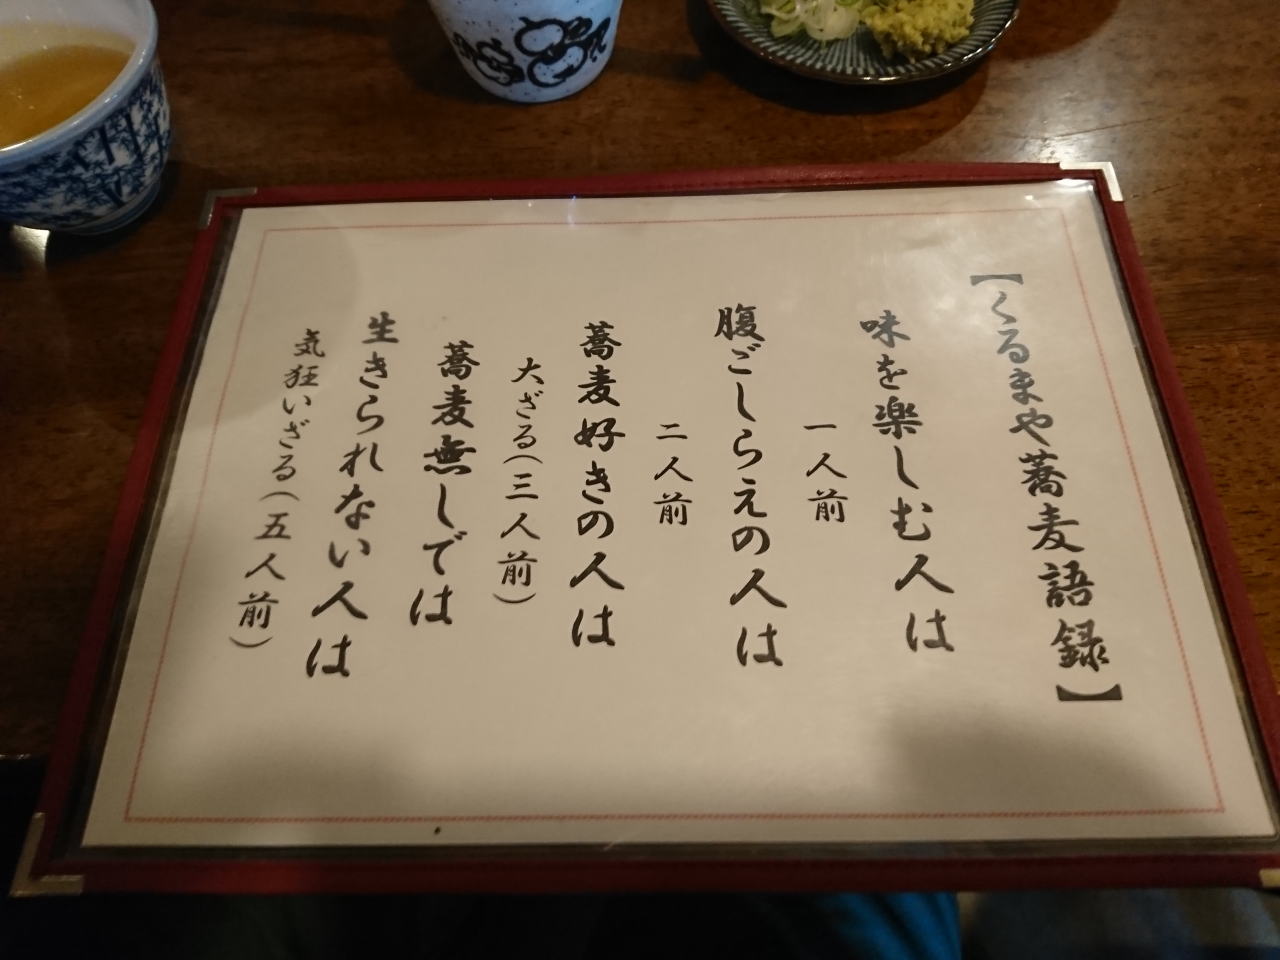 【くるまや蕎麦語録】
味を楽しむ人は
一人前
腹ごしらえの人は
二人前
蕎麦好きの人は
大ざる(三人前)
蕎麦無しでは
生きられない人は
気狂いざる(五人前)